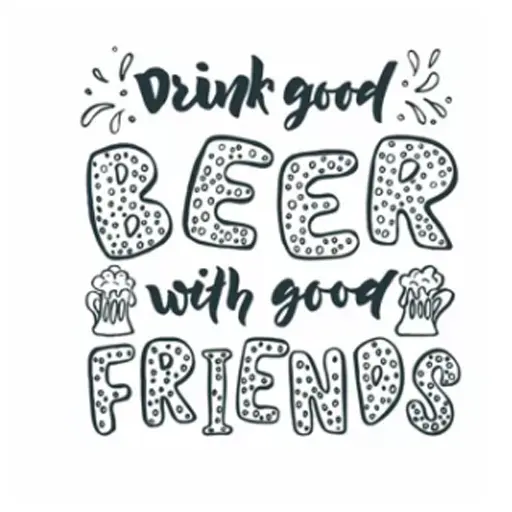 Drink good
BEER
with good
FRIENDS